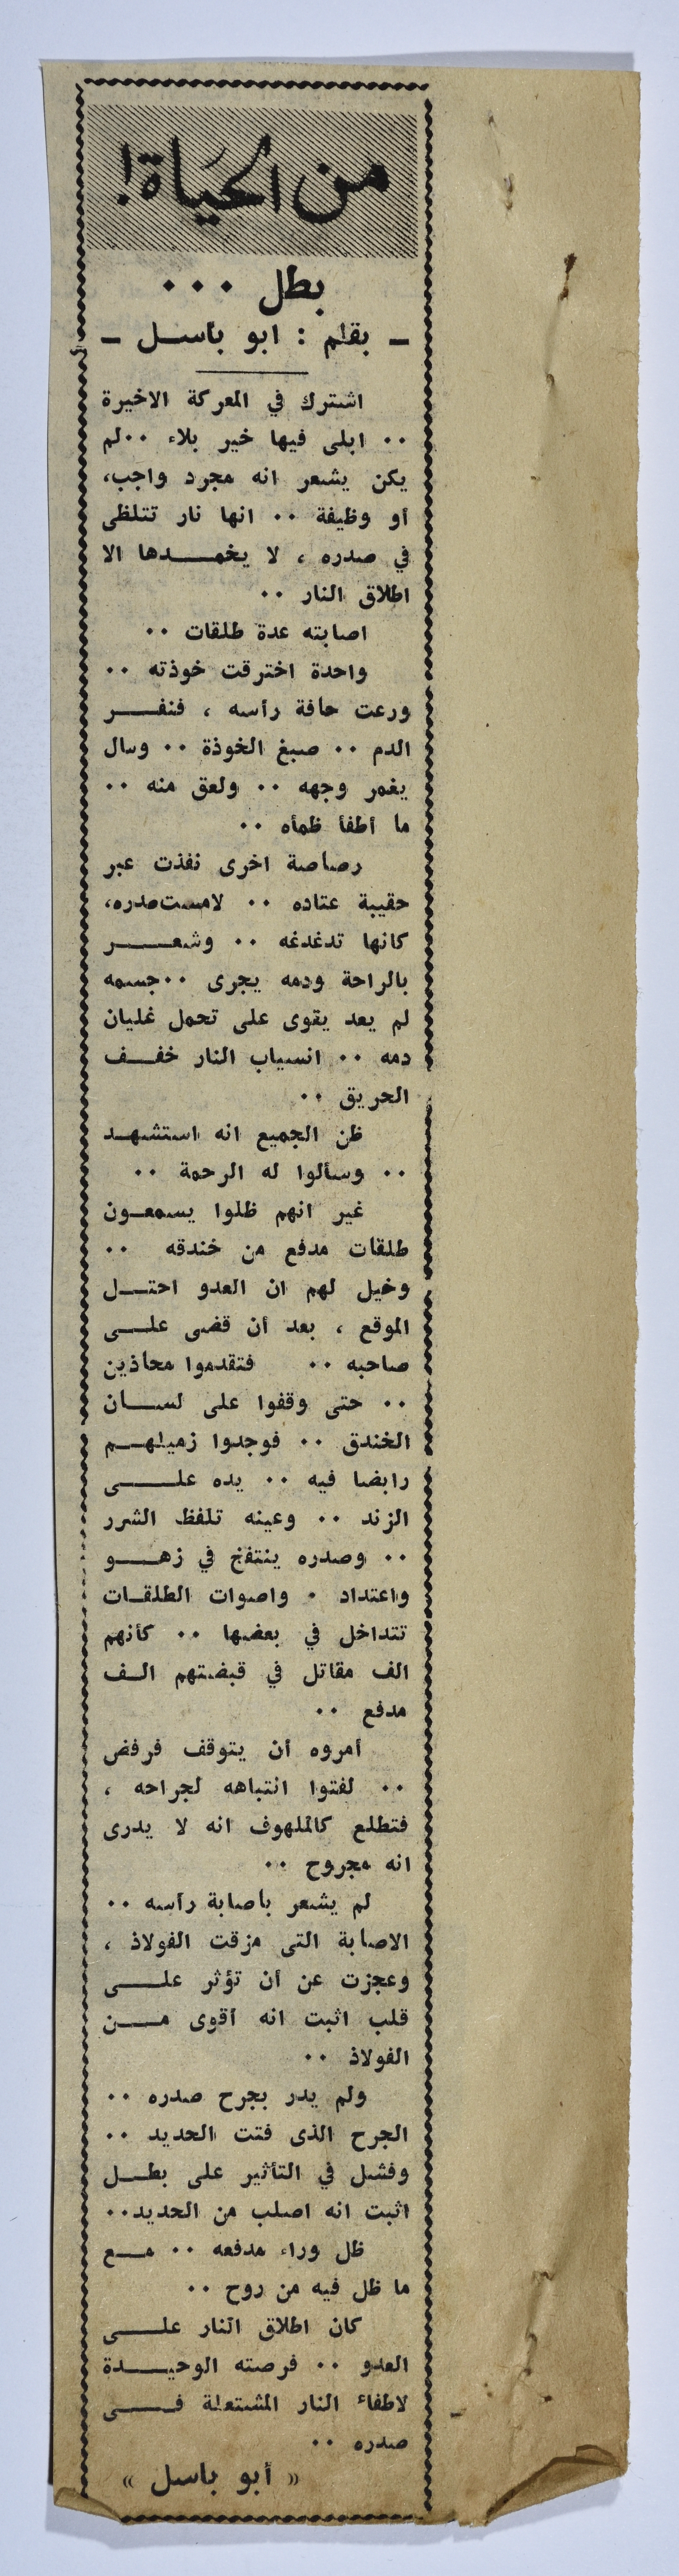 من الحياة!
بطل ...
ـ بقلم : ابو باسل ـ
اشترك في المعركة الاخيرة
.. ابلى فيها خير بلاء ..لم
يكن يشعر انه مجرد واجب،
أو وظيفة .. انها نار تتلظى
في صدره ، لا يخمدها الا
اطلاق النار ..
اصابته عدة طلقات ..
واحدة اخترقت خوذته ..
ورعت حافة رأسه ، فنفر
الدم .. صبغ الخوذة .. وسال
يغمر وجهه .. ولعق منه ..
ما أطفأ ظمأه ..
رصاصة اخرى نفذت عبر
حقيبة عتاده .. لامست صدره،
كانها تدغدغه .. وشعر
بالراحة ودمه يجرى ..جسمه
لم يعد يقوى على تحمل غليان
دمه .. انسياب النار خفف
الحريق ..
ظن الجميع انه استشهد
.. وسألوا له الرحمة ..
غير انهم ظلوا يسمعون
طلقات مدفع من خندقه ..
وخيل لهم ان العدو احتل
الموقع ، بعد أن قضى على
صاحبه .. فتقدموا محاذين
.. حتى وقفوا على لسان
الخندق .. فوجدوا زميلهم
رابضا فيه .. يده على
الزند .. وعينه تلفظ الشرر
.. وصدره ينتفخ في زهو
واعتداد . واصوات الطلقات
تتداخل في بعضها .. كأنهم
الف مقاتل في قبضتهم الف
مدفع ..
أمروه أن يتوقف فرفض
.. لفتوا انتباهه لجراحه ،
فتطلع كالملهوف انه لا يدرى
انه مجروح ..
لم يشعر باصابة رأسه ..
الاصابة التى مزقت الفولاذ ،
وعجزت عن أن تؤثر على
قلب اثبت انه أقوى من
الفولاذ ..
ولم يدر بجرح صدره ..
الجرح الذى فتت الحديد ..
وفشل في التأثير على بطل
اثبت انه اصلب من الحديد..
ظل وراء مدفعه .. مع
ما ظل فيه من روح ..
كان اطلاق النار على
العدو .. فرصته الوحيدة
لاطفاء النار المشتعلة فى
صدره ..
« أبو باسل »